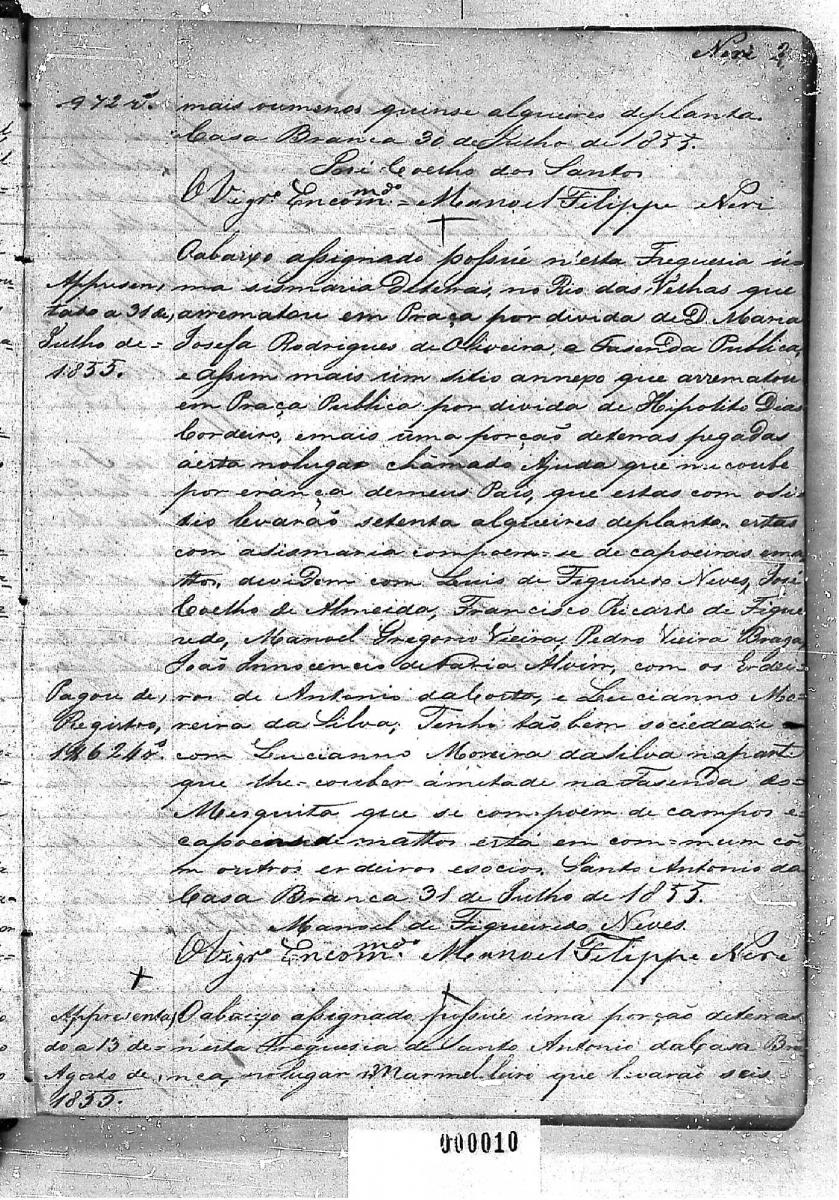 Neri 2
972 rs. mais oumenos quinse alqueires deplanta.
Casa Branca 30 de Julho de 1855.
José Coelho dos Santos
O Vigrº Encommdº = Manoel Filippe Neri
Oabaixo assignado possue n'esta Freguesia u=
ma sismaria deterras, no Rio das Velhas que
arrematou em Praça por divida de D. Maria
Josefa Rodrigues de Oliveira, a Fasenda Publica,
e assim mais um sitio annexo que arrematou
em Praça Publica por divida de Hipolito Dias
Cordeiro, emais uma porção deterras pegadas
áesta nolugar chamado Ajuda que me coube
por erança demeus Pais, que estas com osi=
tio levarão setenta alqueires deplanta, estas
com asismaria compoem-se de capoeiras ema=
ttos, devidem com Luis de Figueiredo Neves, José
Coelho de Almeida, Francisco Ricardo de Figue
redo, Manoel Gregorio Vieira, Pedro Vieira Braga,
João Innocencio deFaria Alvim, com os Erdei=
ros de Antonio daCosta, e Lucianno Mo=
reira da Silva, Tenho tãobem sociedade
com Lucianno Moreira daSilva naparte
que lhe-couber ámetade na Fasenda do=
Mesquita que se compoem de campos e=
capoens de mattos está em com-mum co=
m outros erdeiros esocios. Santo Antonio da
Casa Branca 31 de Julho de 1855.
Manoel de Figueiredo Neves.
O Vigrº Encommdº Manoel Filippe Neri
Oabaixo assignado possue uma porção deterras
n'esta Freguesia de Santo Antonio daCasa Bra
nca, nolugar Marmelleiro que levarão seis
Appresen,
tado a 31 de,
Julho de=
1855.
Pagou de,
Registro,
1\$624 rs.
Appresenta,
do a 13 de=
Agosto de,
1855.
000010